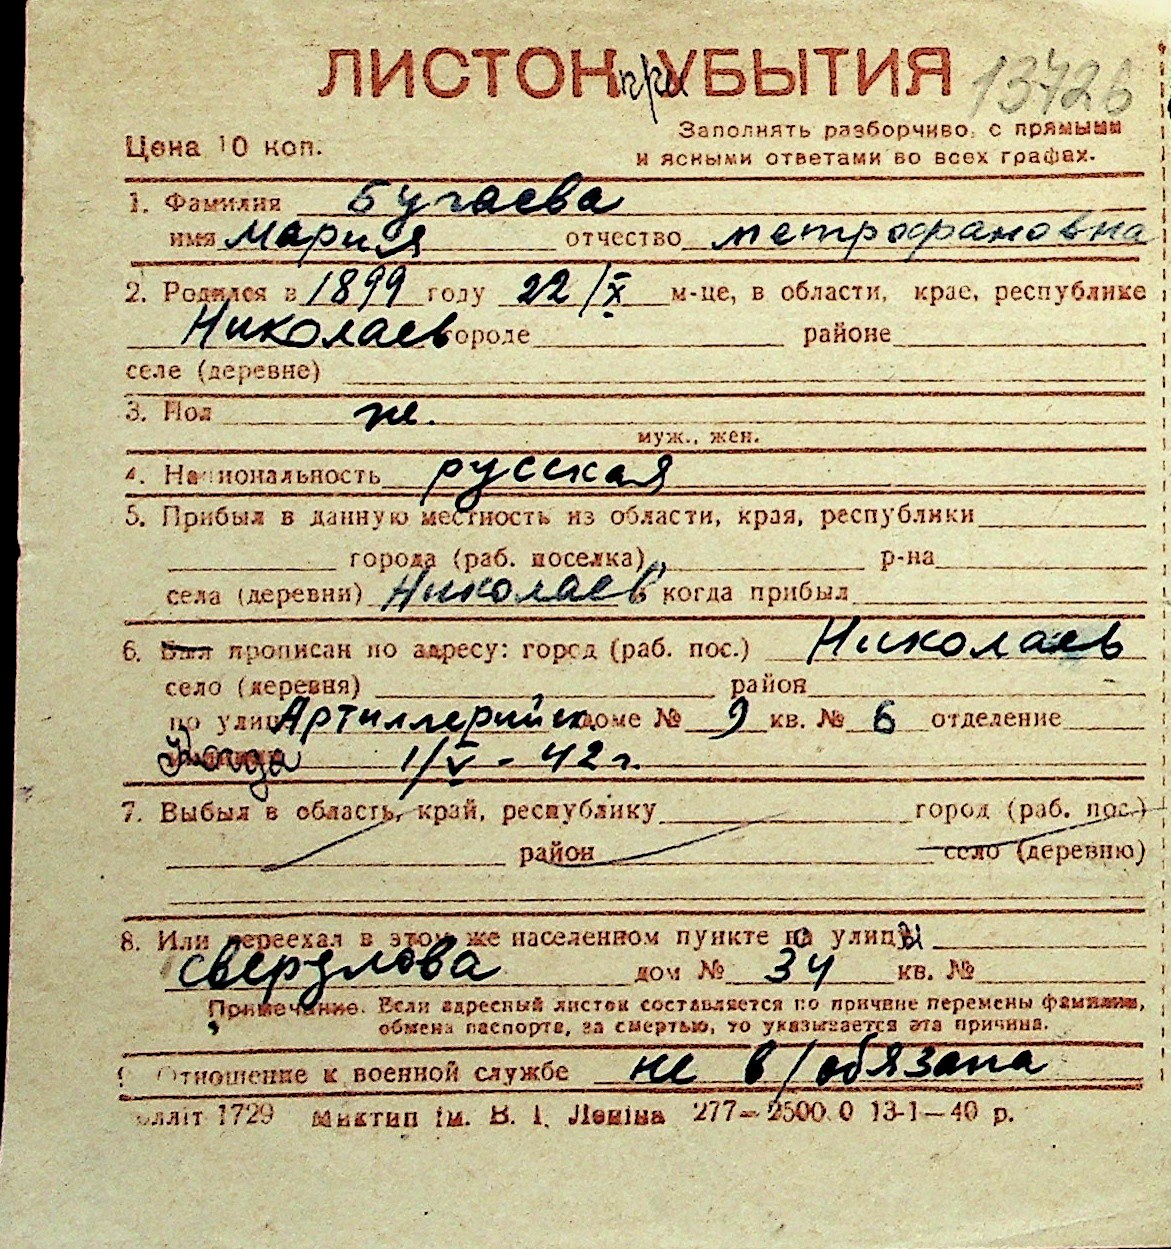 ЛИСТОК при УБЫТИЯ 13726
Цена 10 коп.
Заполнять разборчиво, с прямыми
и ясными ответами во всех графах.
1. Фамилия Бугаева
имя Мария отчество метрофановна
2. Родился в 1899 году 22/X м-це, в области, крае, республике
Николаев городе районе
селе (деревне)
3. Пол же.
муж., жен.
4. Национальность русская
5. Прибыл в данную местность из области, края, республики
города (раб. поселка) р-на
села (деревни) Николаев когда прибыл
6. Был прописан по адресу: город (раб. пос.) Николаев
село (деревня) район
по улице Артиллерийск доме № 9 кв. № 6 отделение
Когда 1/V - 42 г.
7. Выбыл в область, край, республику город (раб. пос.)
район село (деревню)
8. Или переехал в этом же населенном пункте по улицы
свердлова дом № 34 кв. №
Примечание. Если адресный листок составляется по причине перемены фамилии,
обмена паспорта, за смертью, то указывается эта причина.
9. Отношение к военной службе не в/обязана
лліт 1729 Миктип ім. В. І. Леніна 277—2500.0 13-1—40 р.